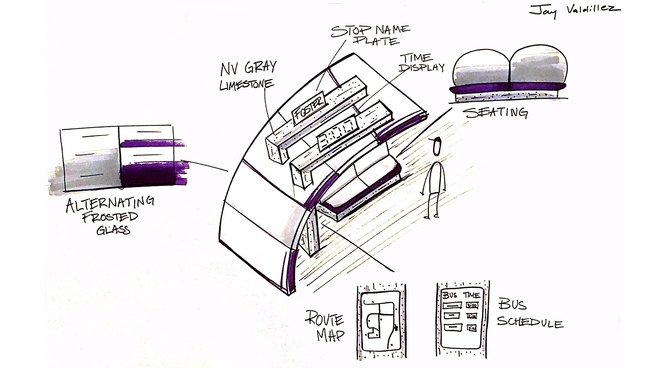 Jay Valdillez
STOP NAME
PLATE
TIME
DISPLAY
NV GRAY
LIMESTONE
FOSTER
SEATING
ALTERNATING
FROSTED
GLASS
ROUTE
MAP
BUS TIME
BUS
SCHEDULE